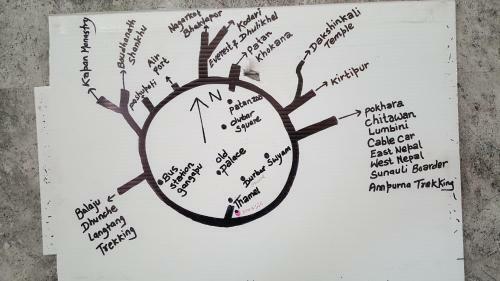 Kopan Monestry
Boudhanath
Shankhu
pashupati
Air
port
Nagarkot
Bhaktapor
Kodari
Everest & Dhulikhel
Patan
Khokana
Dakshinkali
Temple
Kirtipur
pokhara
Chitawan
Lumbini
Cable Car
East Nepal
West Nepal
Sunauli Boarder
Ampurna Trekking
N
patanzoo
durbar
Square
old
palace
Bus
Station
gangabu
Durbar Swyam
Thamel
Balaju
Dhunche
Langtang
Trekking